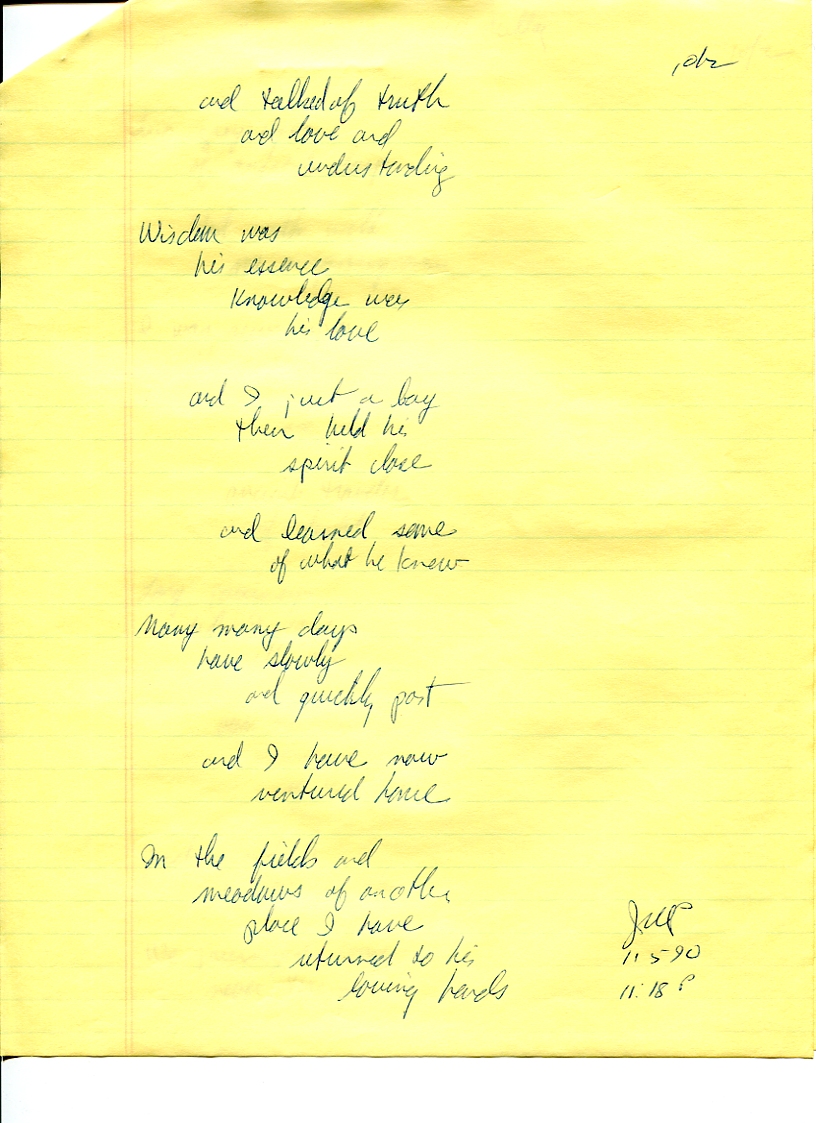 and talked of truth
and love and
understanding
Wisdom was
his essence
Knowledge was
his love
and I just a boy
then held his
spirit close
and learned some
of what he knew
Many many days
have slowly
and quickly past
and I have now
ventured home
In the fields and
meadows of another
place I have
returned to his
loving hands
11·5 90
11:18 P